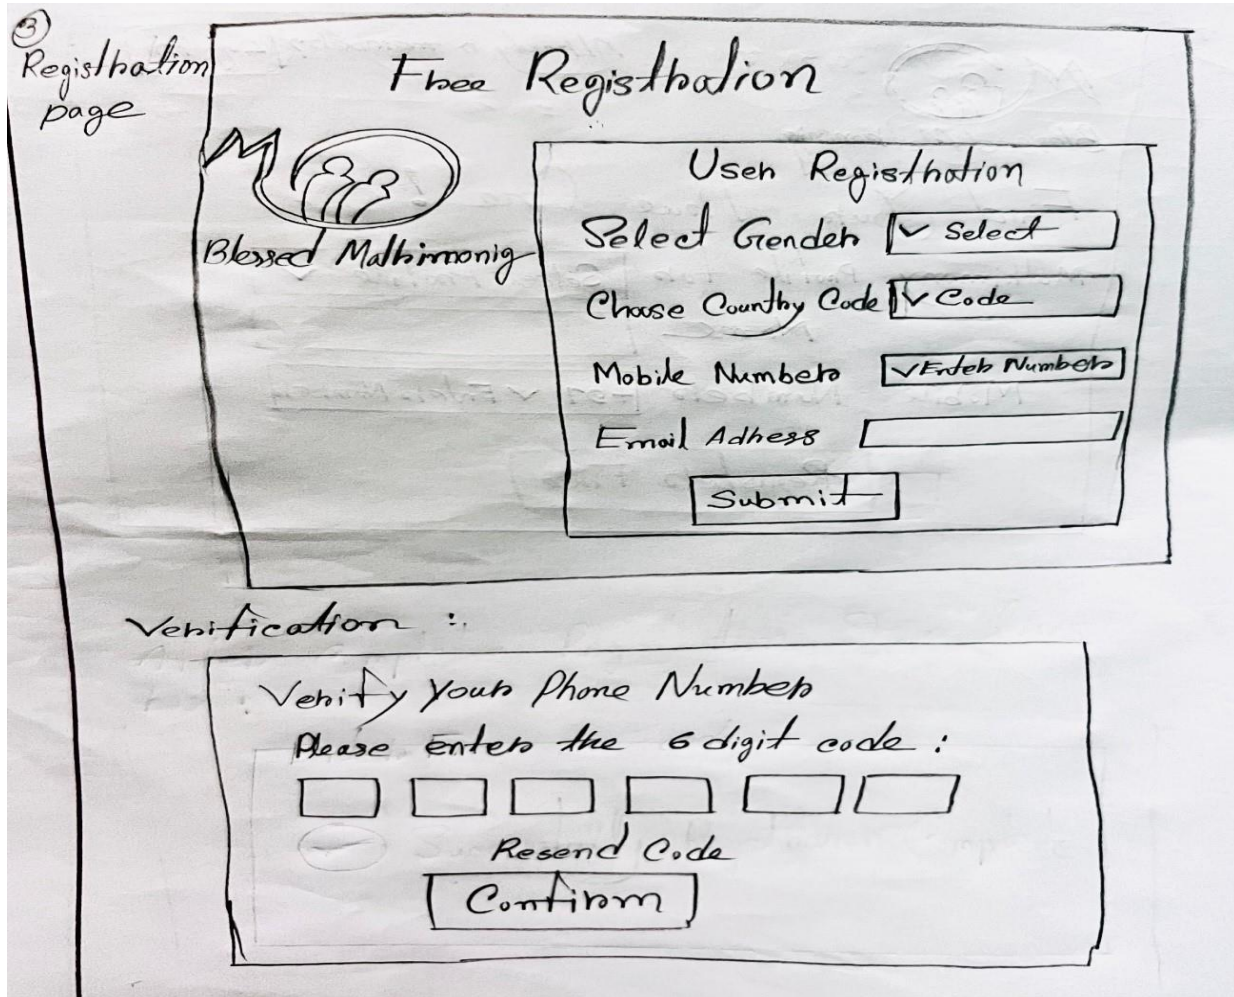 3
Registration
page
Free Registration
Blessed Matrimonig
User Registration
Select Gender ✓ Select
Choose Country Code ✓ Code
Mobile Number ✓ Enter Number
Email Adress
Submit
Verification :
Verify your Phone Number
Please enter the 6 digit code :
Resend Code
Confirm